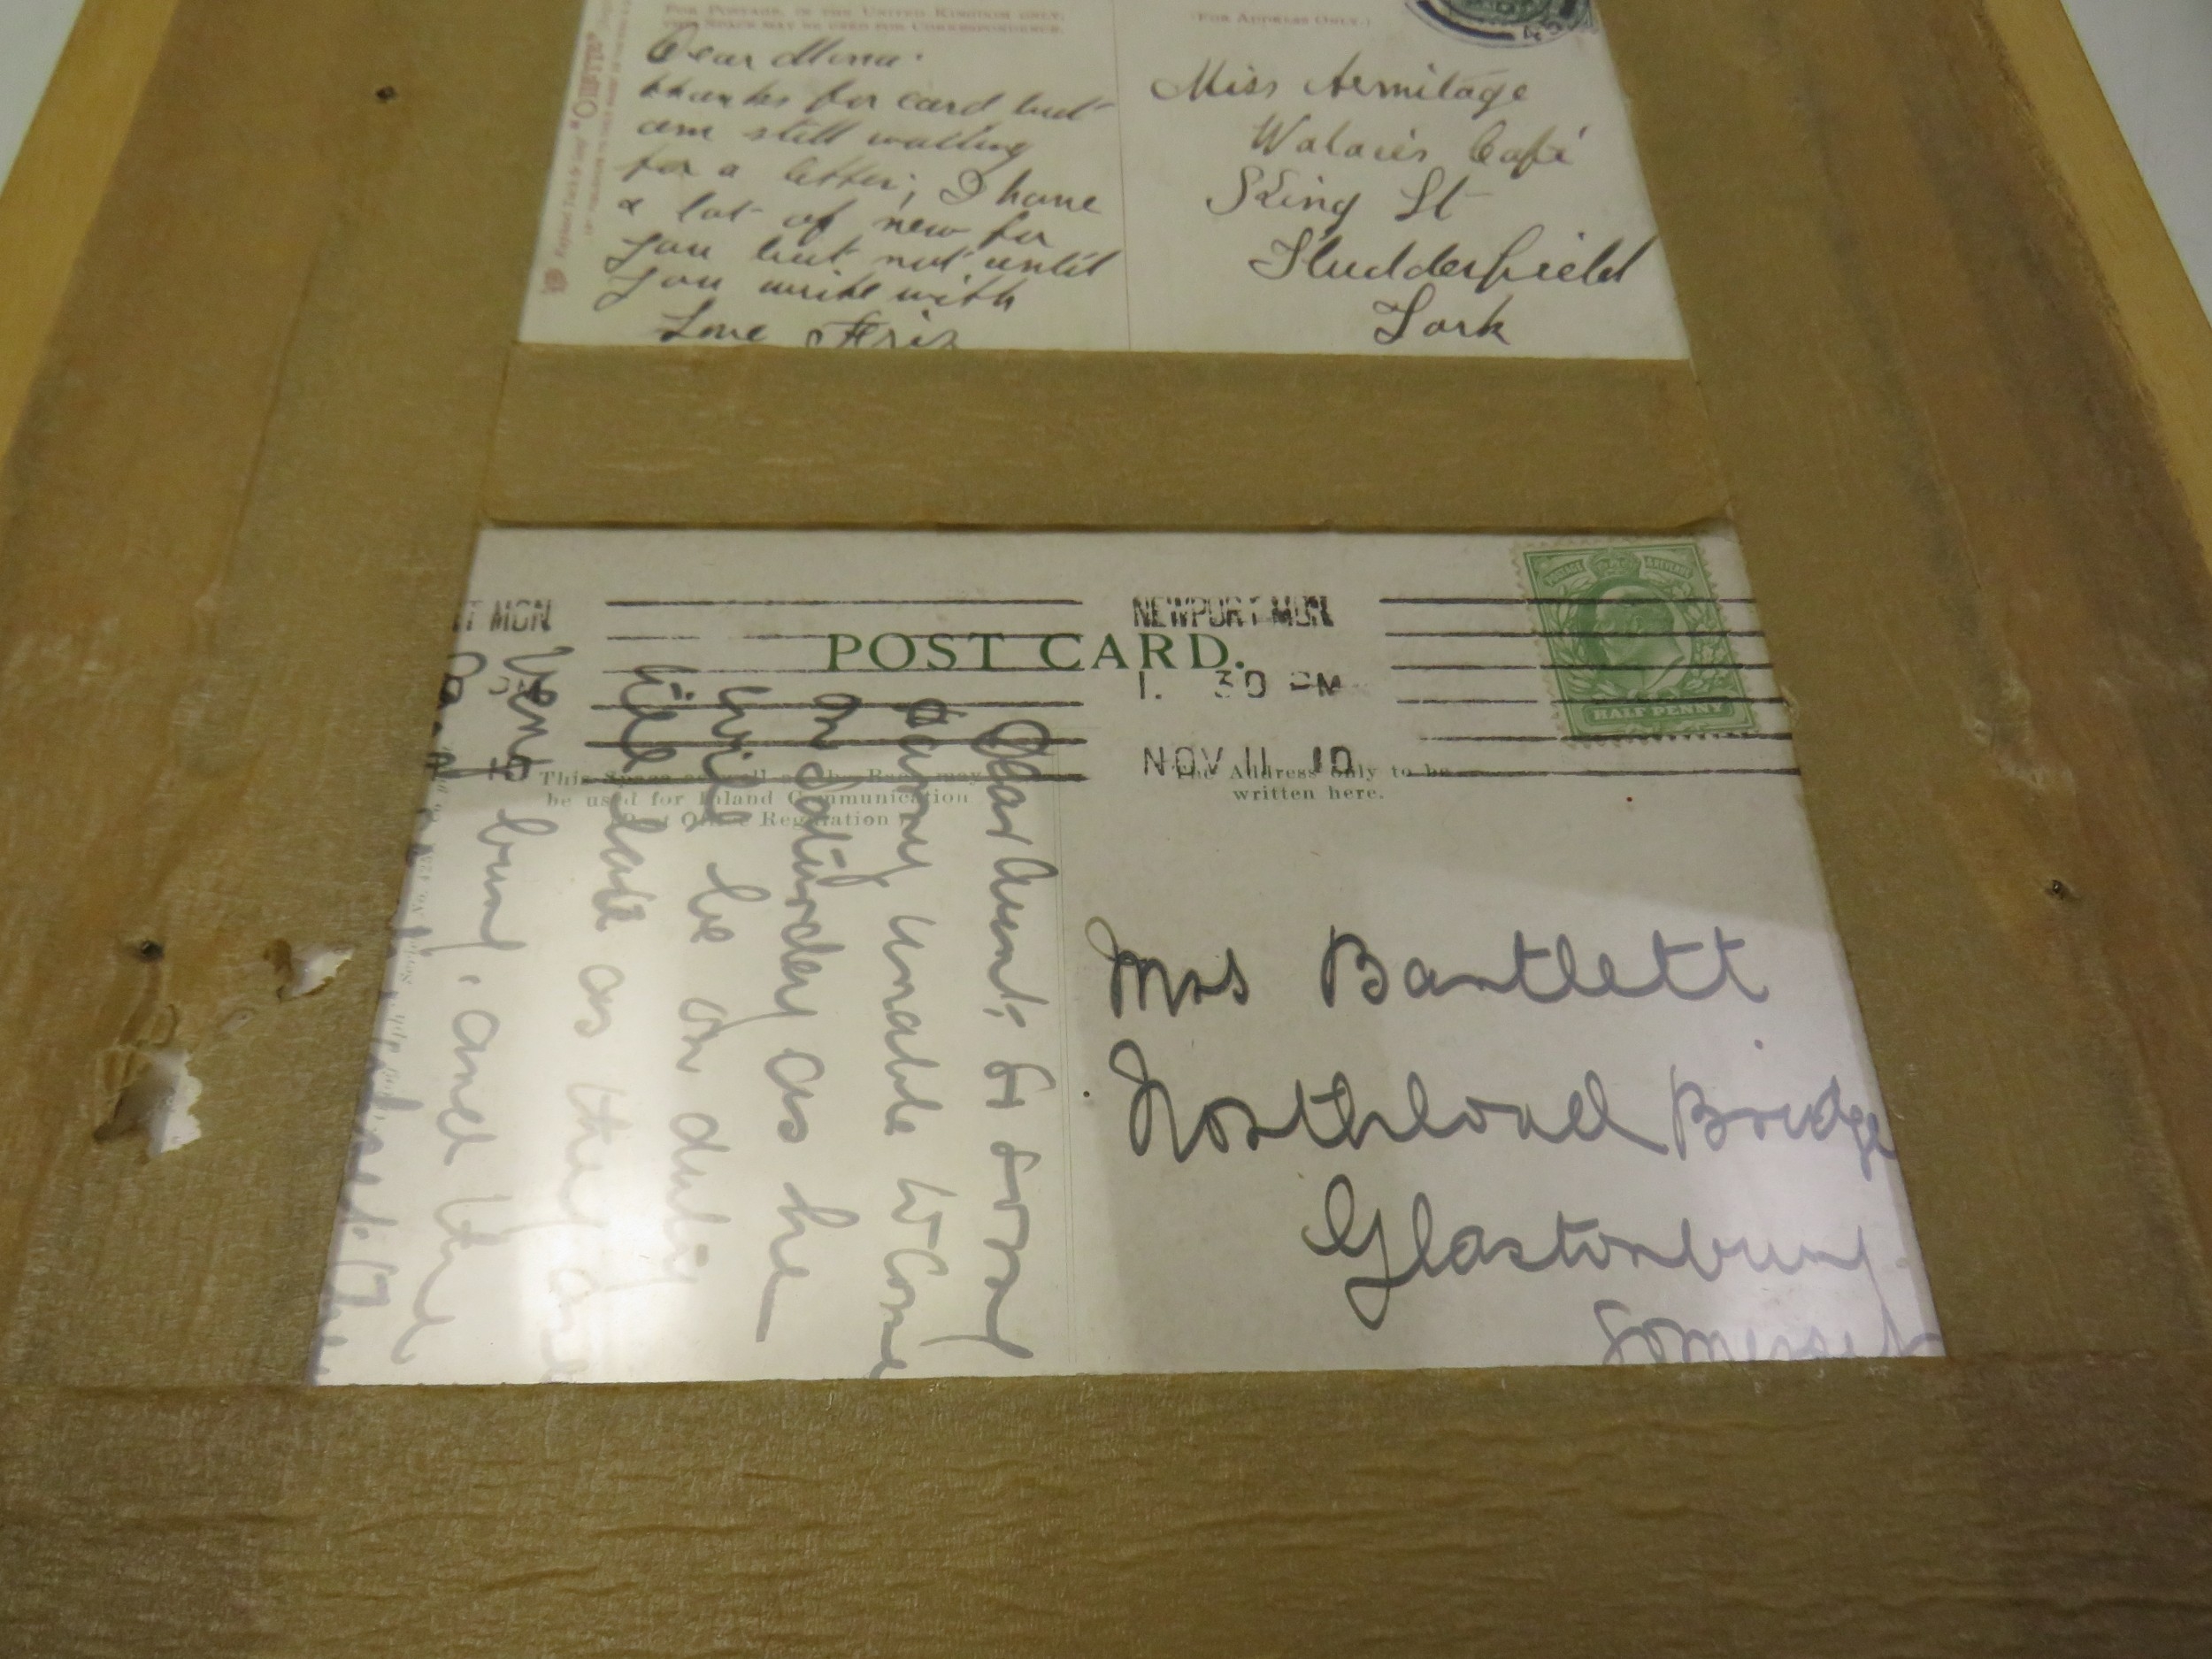 FOR POSTAGE IN THE UNITED KINGDOM ONLY,
THIS SPACE MAY BE USED FOR CORRESPONDENCE.
(FOR ADDRESS ONLY.)
Dear Mina.
thanks for card but
am still waiting
for a letter; I have
a lot of new for
you but not until
you write with
Love
Miss Armitage
Café
King St
Hudderfield
York
"OILETTE"
T MON
NEWPORT MON
POST CARD.
1. 30 PM
NOV 11 10
HALF PENNY
This Space as well as the Back may
be used for Inland Communication
Post Office Regulation
The Address only to be
written here.
Mrs Bartlett
Northload Bridge
Glastonbury
Somerset
Dear Aunt. So sorry
unable to Come
on Saturday as he
will be on duty
till late as they are
very busy, and the